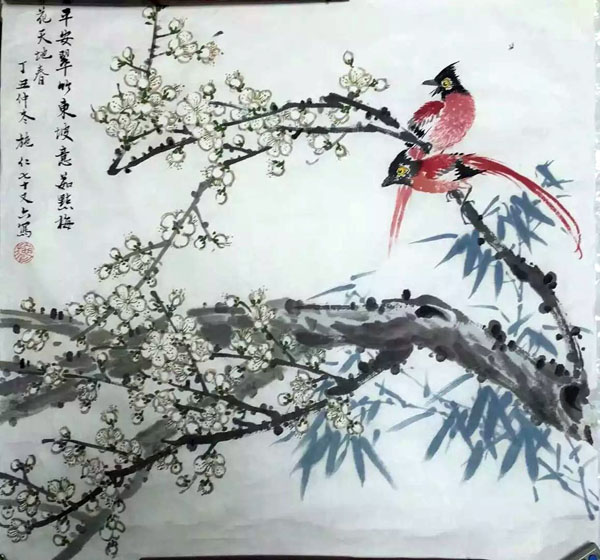 早安翠竹東坡意茹點梅
花天地春
丁丑仲冬 施仁七十又六寫